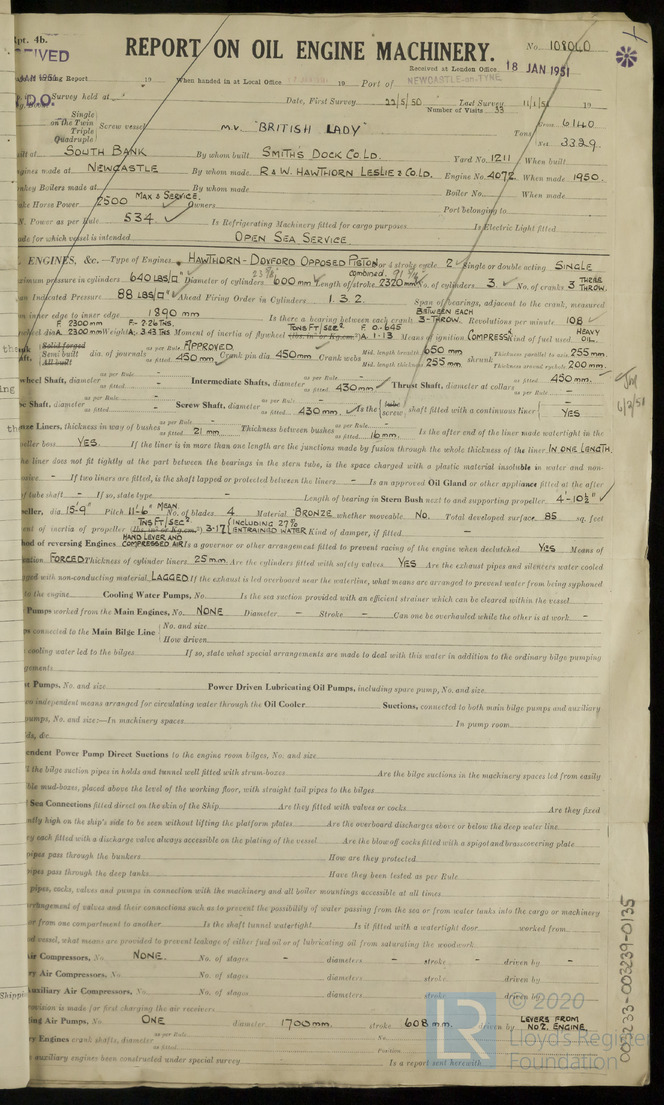 Rpt. 4b.
REPORT ON OIL ENGINE MACHINERY.
No. 108060
Received at London Office 18 JAN 1951
Report 19 When handed in at Local Office 19 Port of NEWCASTLE-on-TYNE
D.O. Survey held at Date, First Survey 22/5/50 Last Survey 11/1/51 19
Number of Visits 33
Single on the Twin Triple Quadruple Screw vessel m.v. "BRITISH LADY" Tons Gross 6140 Net 3329
built at SOUTH BANK By whom built SMITH'S DOCK CO. LD. Yard No. 1211 When built
Engines made at NEWCASTLE By whom made R & W. HAWTHORN LESLIE & CO. LD. Engine No. 4072 When made 1950
Boilers made at By whom made Boiler No. When made
Horse Power 2500 MAX & SERVICE. Owners Port belonging to
Power as per Rule 534 Is Refrigerating Machinery fitted for cargo purposes Is Electric Light fitted
for which vessel is intended OPEN SEA SERVICE
ENGINES, &c.—Type of Engines HAWTHORN - DOXFORD OPPOSED PISTON or 4 stroke cycle 2 Single or double acting SINGLE
pressure in cylinders 640 LBS/□" Diameter of cylinders 600 mm Length of stroke combined 2320 mm No. of cylinders 3 No. of cranks 3 THREE THROW.
Indicated Pressure 88 LBS/□" Ahead Firing Order in Cylinders 1. 3. 2. Span of bearings, adjacent to the crank, measured
inner edge to inner edge 1390 mm Is there a bearing between each crank BETWEEN EACH 3-THROW. Revolutions per minute 108
F. 2300 mm A. 2300 mm Weight F. 2.26 TNS. A. 3.43 TNS Moment of inertia of flywheel TONS FT/SEC² F. 0.645 A. 1.13 Means of ignition COMPRESSN Kind of fuel used HEAVY OIL.
Solid forged Semi built All built dia. of journals as per Rule APPROVED as fitted 450 mm Crank pin dia 450 mm Crank webs Mid. length breadth 650 mm Mid. length thickness 255 mm shrunk Thickness parallel to axis 255 mm Thickness around eyehole 200 mm
wheel Shaft, diameter as per Rule - as fitted - Intermediate Shafts, diameter as per Rule - as fitted 430 mm Thrust Shaft, diameter at collars as per Rule - as fitted 450 mm.
Shaft, diameter as per Rule - as fitted - Screw Shaft, diameter as per Rule - as fitted 430 mm Is the tube screw shaft fitted with a continuous liner YES
Liners, thickness in way of bushes as per Rule - as fitted 21 mm Thickness between bushes as per Rule - as fitted 16 mm. Is the after end of the liner made watertight in the
propeller boss YES. If the liner is in more than one length are the junctions made by fusion through the whole thickness of the liner IN ONE LENGTH.
the liner does not fit tightly at the part between the bearings in the stern tube, is the space charged with a plastic material insoluble in water and non-
- If two liners are fitted, is the shaft lapped or protected between the liners - Is an approved Oil Gland or other appliance fitted at the after
of tube shaft - If so, state type - Length of bearing in Stern Bush next to and supporting propeller 4'-10½"
dia. 15'-9" Pitch 11'-6" MEAN No. of blades 4 Material BRONZE whether moveable No. Total developed surface 85 sq. feet
of inertia of propeller TNS FT/SEC² 3.17 INCLUDING 27% ENTRAINED WATER Kind of damper, if fitted -
of reversing Engines HAND LEVER AND COMPRESSED AIR Is a governor or other arrangement fitted to prevent racing of the engine when declutched YES Means of
FORCED Thickness of cylinder liners 25 mm Are the cylinders fitted with safety valves YES Are the exhaust pipes and silencers water cooled
with non-conducting material LAGGED If the exhaust is led overboard near the waterline, what means are arranged to prevent water from being syphoned
to the engine Cooling Water Pumps, No. Is the sea suction provided with an efficient strainer which can be cleared within the vessel
Pumps worked from the Main Engines, No. NONE Diameter - Stroke - Can one be overhauled while the other is at work -
connected to the Main Bilge Line No. and size How driven
cooling water led to the bilges If so, state what special arrangements are made to deal with this water in addition to the ordinary bilge pumping
Pumps, No. and size Power Driven Lubricating Oil Pumps, including spare pump, No. and size
independent means arranged for circulating water through the Oil Cooler Suctions, connected to both main bilge pumps and auxiliary
pumps, No. and size:—In machinery spaces In pump room
&c.
Power Pump Direct Suctions to the engine room bilges, No. and size
the bilge suction pipes in holds and tunnel well fitted with strum-boxes Are the bilge suctions in the machinery spaces led from easily
mud-boxes, placed above the level of the working floor, with straight tail pipes to the bilges
Sea Connections fitted direct on the skin of the Ship Are they fitted with valves or cocks Are they fixed
high on the ship's side to be seen without lifting the platform plates Are the overboard discharges above or below the deep water line
each fitted with a discharge valve always accessible on the plating of the vessel Are the blow off cocks fitted with a spigot and brass covering plate
pipes pass through the bunkers How are they protected
pipes pass through the deep tanks Have they been tested as per Rule
pipes, cocks, valves and pumps in connection with the machinery and all boiler mountings accessible at all times
arrangement of valves and their connections such as to prevent the possibility of water passing from the sea or from water tanks into the cargo or machinery
or from one compartment to another Is the shaft tunnel watertight Is it fitted with a watertight door worked from
vessel, what means are provided to prevent leakage of either fuel oil or of lubricating oil from saturating the woodwork
Air Compressors, No. NONE. No. of stages - diameters - stroke - driven by -
Air Compressors, No. No. of stages diameters stroke driven by
Auxiliary Air Compressors, No. No. of stages diameters stroke driven by
provision is made for first charging the air receivers
Air Pumps, No. ONE diameter 1700 mm. stroke 608 mm. driven by LEVERS FROM No 2. ENGINE.
Engines crank shafts, diameter as per Rule as fitted No. Position
auxiliary engines been constructed under special survey Is a report sent herewith
003233-003239-0135
LR
© 2020
Lloyd's Register
Foundation